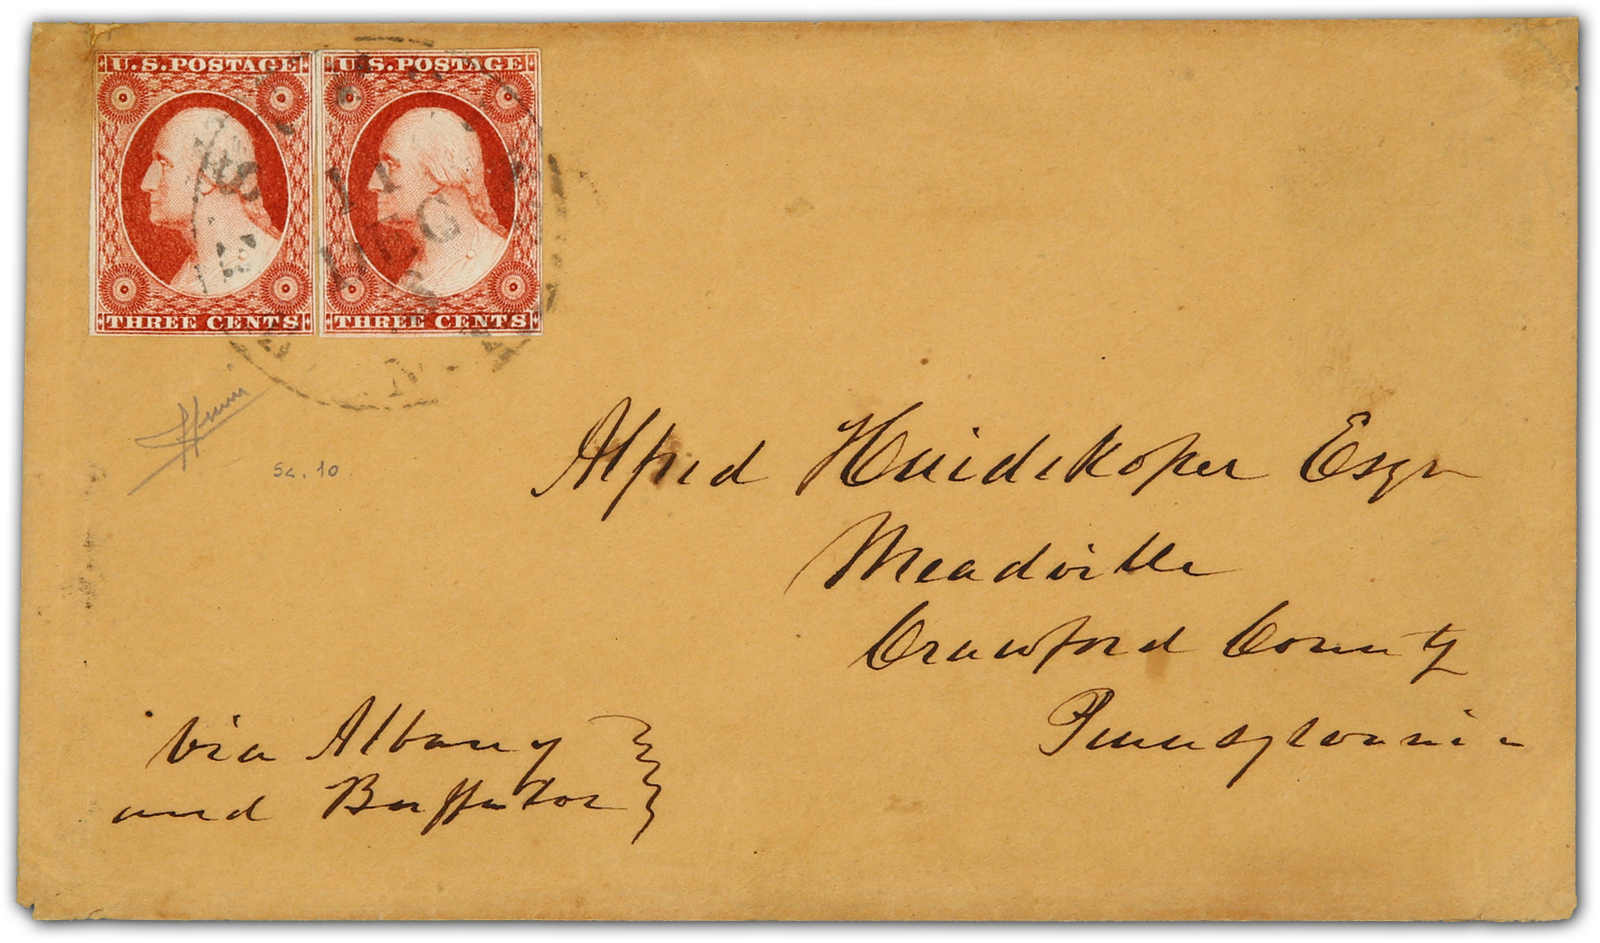 U.S.POSTAGE U.S.POSTAGE
11
DEC
THREE CENTS THREE CENTS
Sc. 10
Alfred Huidekoper Esqr
Meadville
Crawford County
Pennsylvania
via Albany
and Buffaloe